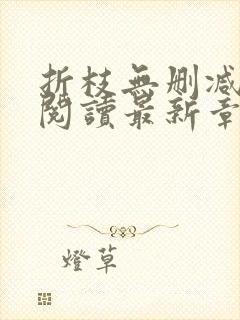 折枝無删减
閱讀最新章
燈草